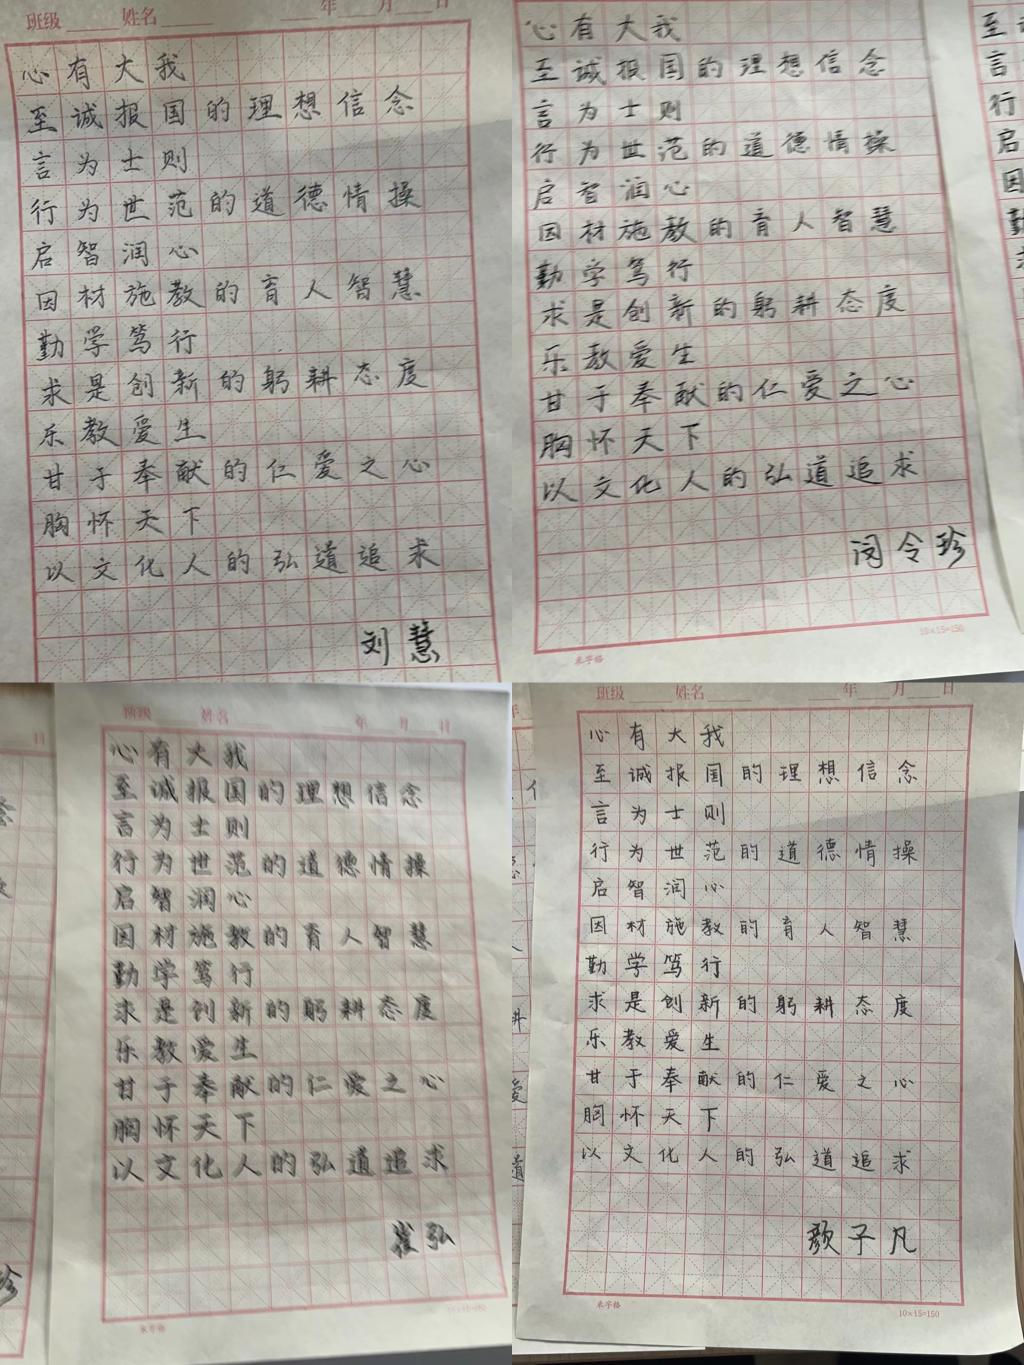 班级 姓名 年 月 日
心有大我
至诚报国的理想信念
言为士则
行为世范的道德情操
启智润心
因材施教的育人智慧
勤学笃行
求是创新的躬耕态度
乐教爱生
甘于奉献的仁爱之心
胸怀天下
以文化人的弘道追求
刘慧
心有大我
至诚报国的理想信念
言为士则
行为世范的道德情操
启智润心
因材施教的育人智慧
勤学笃行
求是创新的躬耕态度
乐教爱生
甘于奉献的仁爱之心
胸怀天下
以文化人的弘道追求
闵令珍
米字格
10×15=150
至
言
行
启
因
勤
求
日
班级 姓名 年 月 日
心有大我
至诚报国的理想信念
言为士则
行为世范的道德情操
启智润心
因材施教的育人智慧
勤学笃行
求是创新的躬耕态度
乐教爱生
甘于奉献的仁爱之心
胸怀天下
以文化人的弘道追求
崔弘
米字格
10×15=150
珍
班级 姓名 年 月 日
心有大我
至诚报国的理想信念
言为士则
行为世范的道德情操
启智润心
因材施教的育人智慧
勤学笃行
求是创新的躬耕态度
乐教爱生
甘于奉献的仁爱之心
胸怀天下
以文化人的弘道追求
颜子凡
米字格
10×15=150